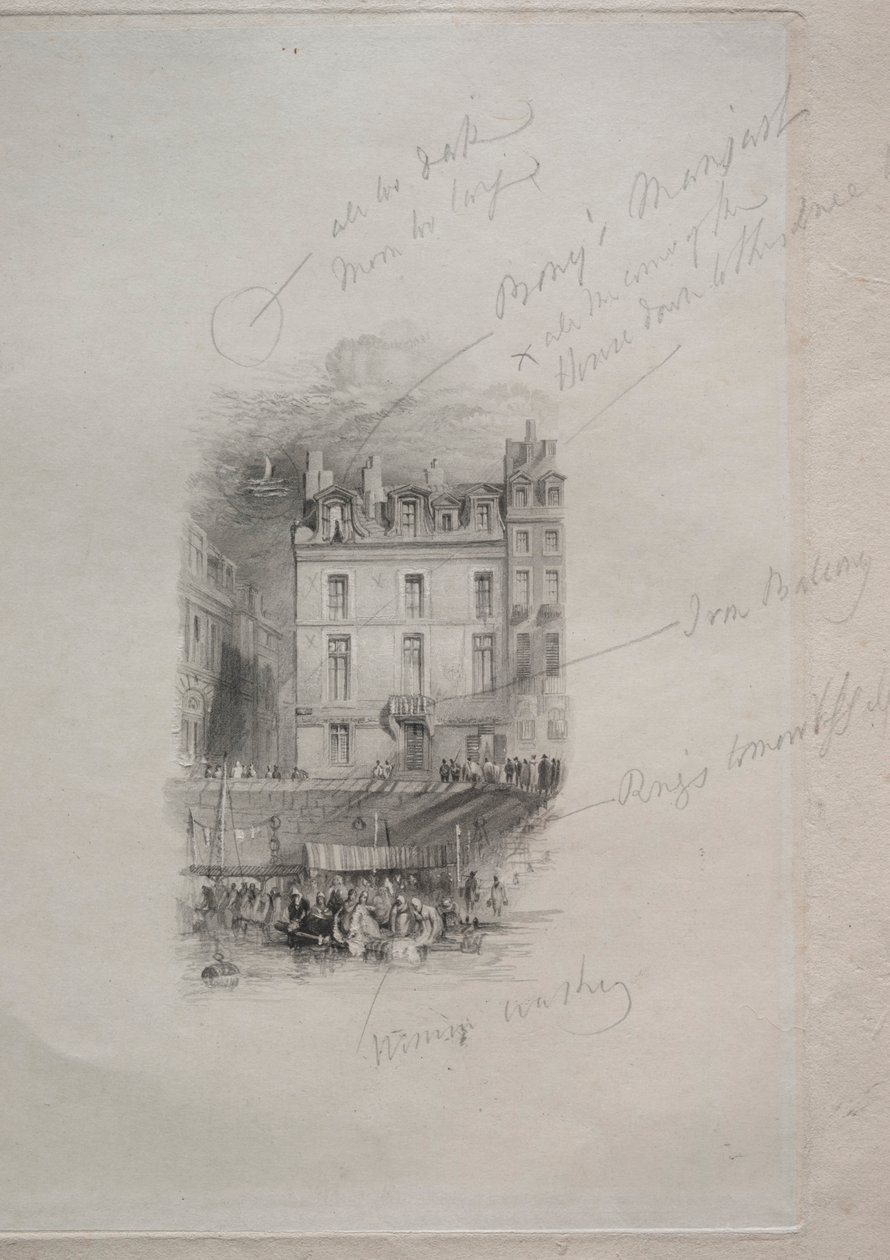 all too dark
Moon too large
Bony's
x all the corner of the
House down to this
Iron Balcony
Rings to moor
Women washing